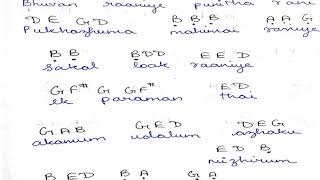 Bhuvan raaniye punitha rani
D E G D B B B A A G
Pukhazhuma mahimai raniye
B B B D D E E D
sakal loak raaniye
G F# G G F# E D
ek paraman thai
G A B G E D D E G
akamum udalum azhaku
E D B
mizhirum
B E D B A G A